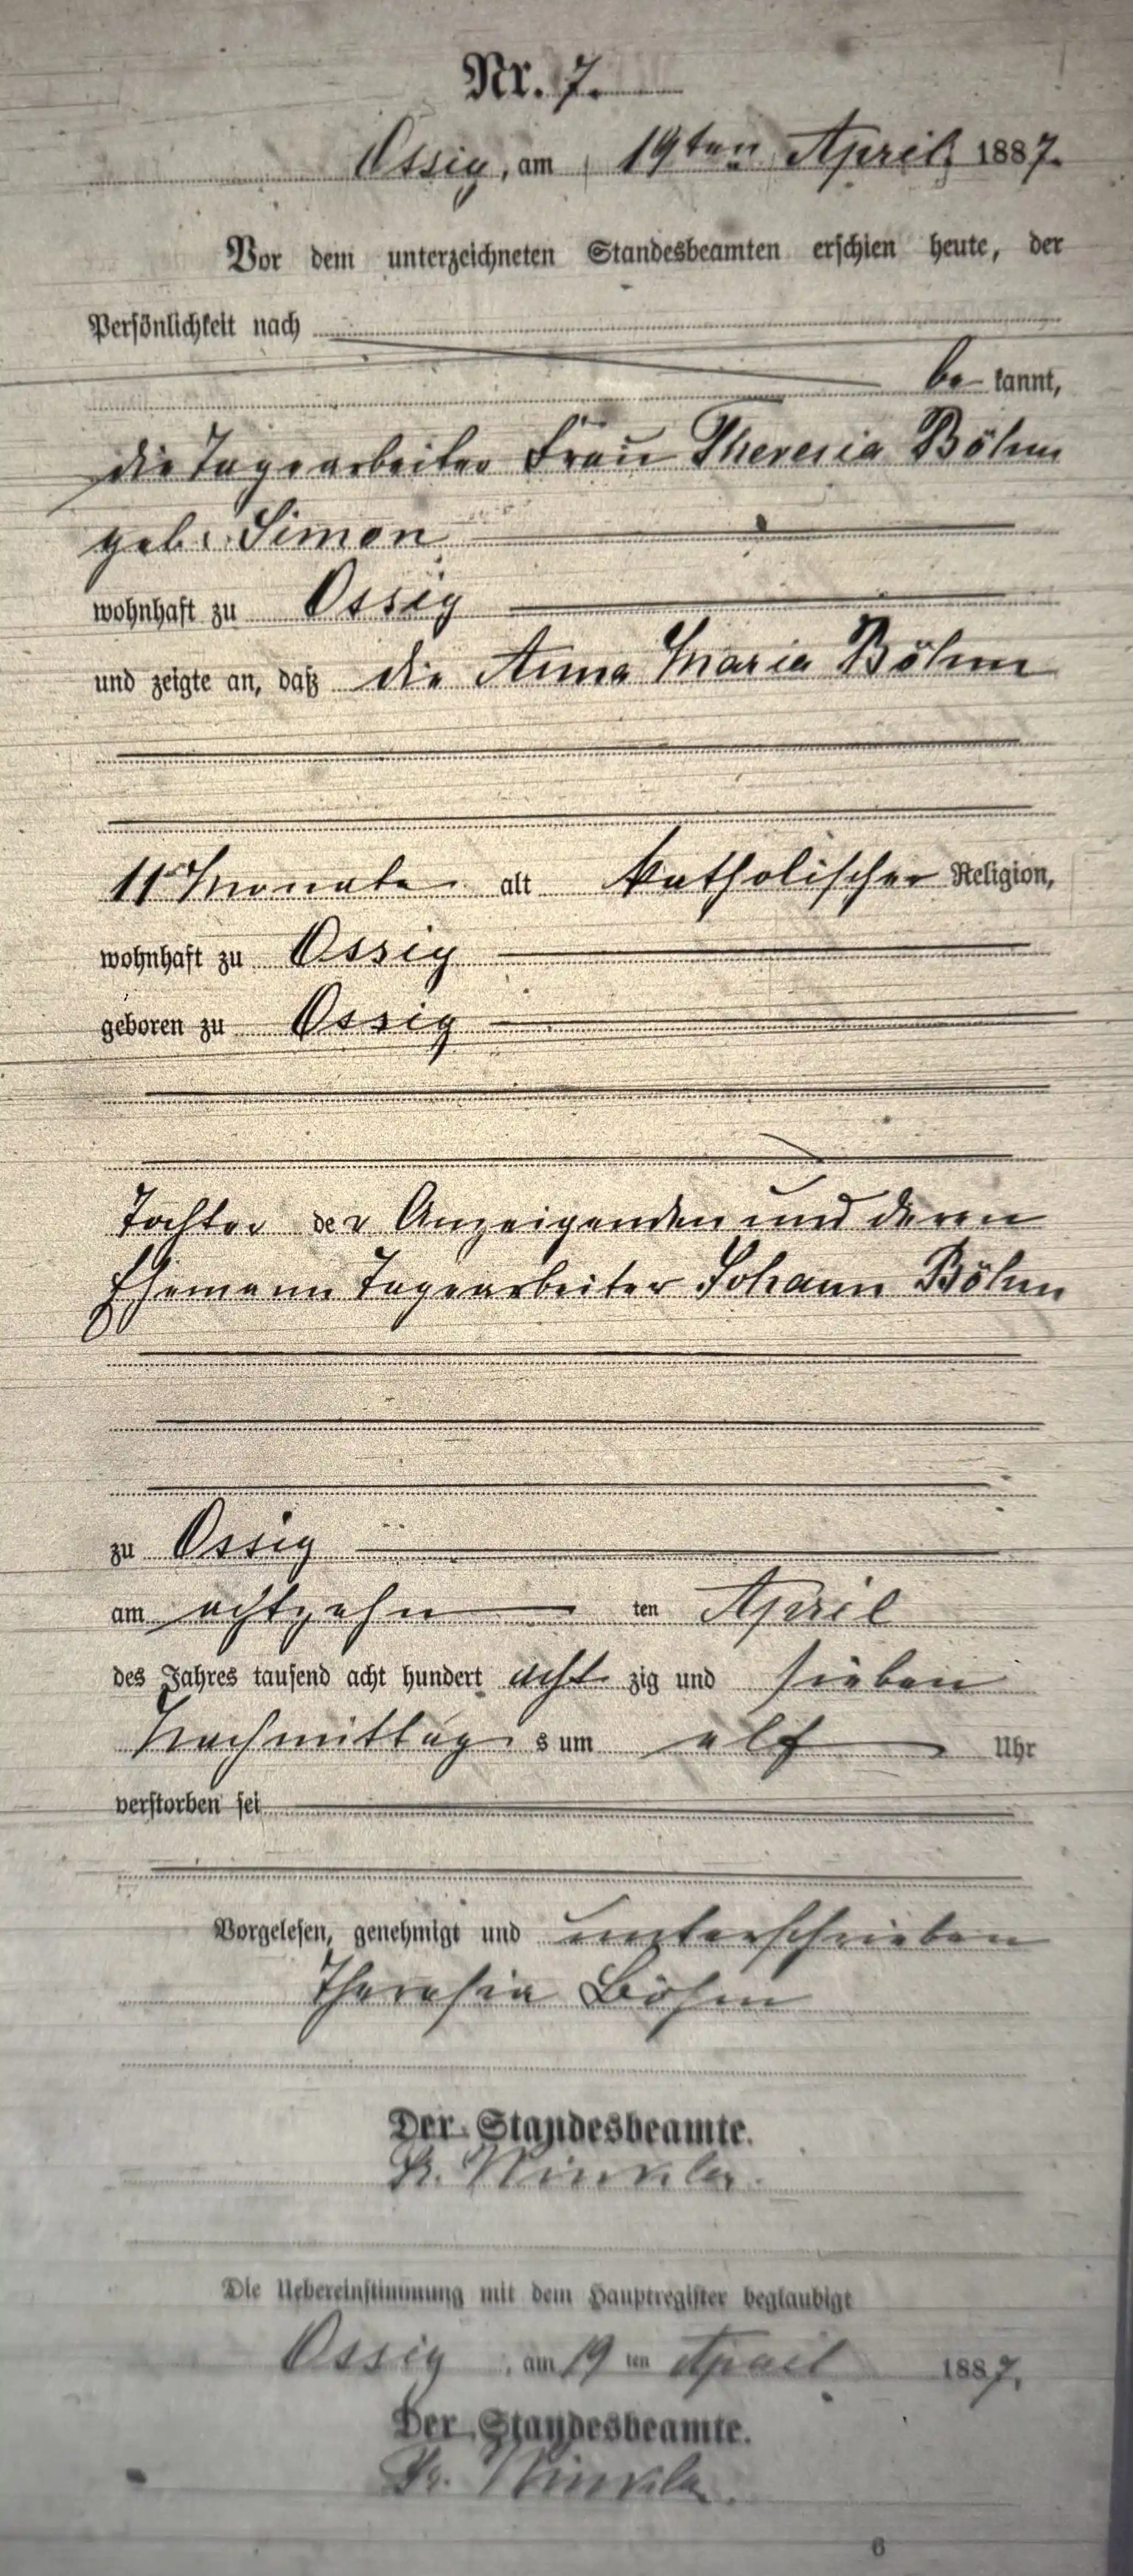 Nr. 7.
Ossig, am 19ten April 1887.
Vor dem unterzeichneten Standesbeamten erschien heute, der
Persönlichkeit nach
be kannt,
die Tagearbeiter Frau Theresia Böhm
geb. Simon
wohnhaft zu Ossig
und zeigte an, daß die Anna Maria Böhm
11 Monate alt katholischer Religion,
wohnhaft zu Ossig
geboren zu Ossig
Tochter der Anzeigenden und deren
Ehemann Tagearbeiter Johann Böhm
zu Ossig
am achtzehn ten April
des Jahres tausend acht hundert acht zig und sieben
Nachmittag s um elf Uhr
verstorben sei
Vorgelesen, genehmigt und unterschrieben
Theresia Böhm
Der Standesbeamte.
Winkler.
Die Uebereinstimmung mit dem Hauptregister beglaubigt
Ossig, am 19 ten April 1887.
Der Standesbeamte.
Winkler.
6